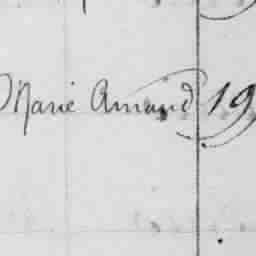 Marie Amand 19